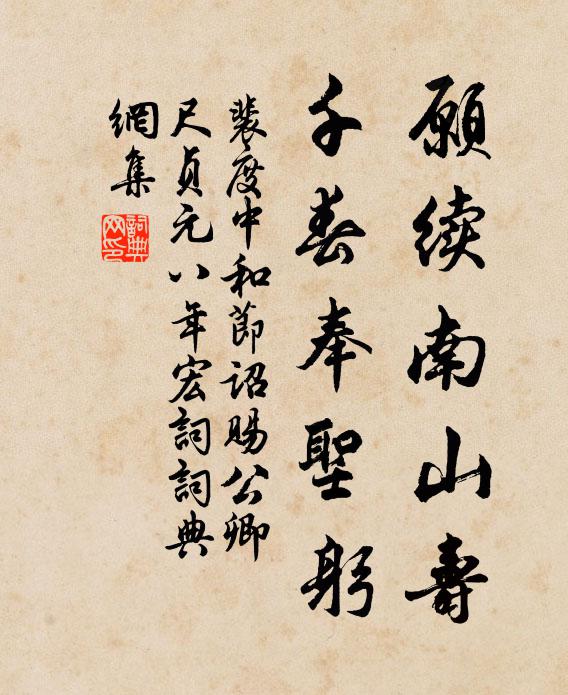 願續南山壽
千春奉聖躬
裴度中和節詔賜公卿
尺貞元八年宏詞詞典
網集
詞典
网印